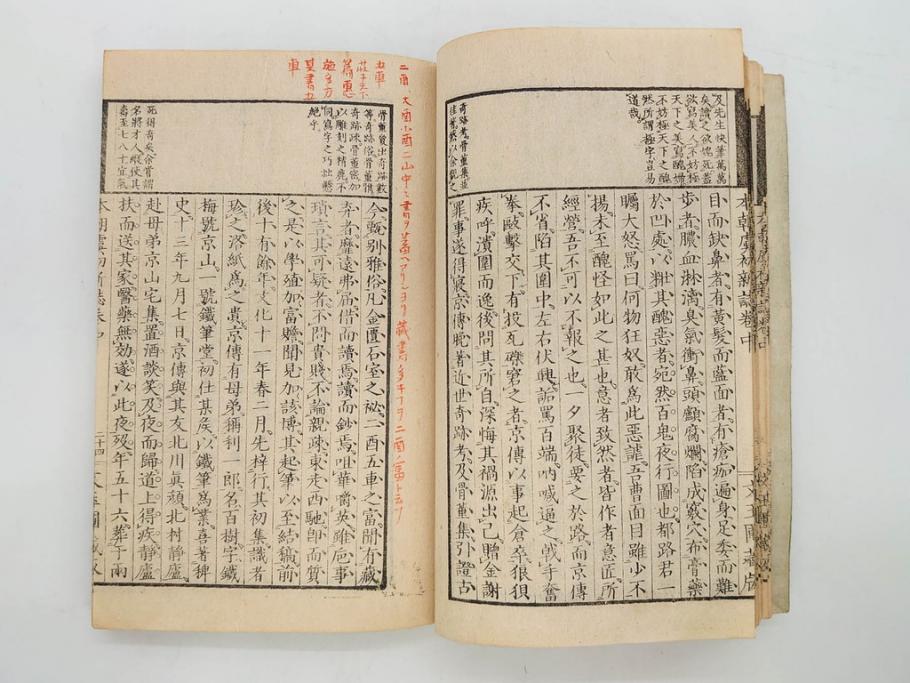 本朝虞初新誌卷中
及先生快筆萬萬
矣讀之欲愧死蓋
欲寫美人不妨極
天下之美寫醜婦
不妨極天下之醜
然所謂極字豈易
道哉
奇跡考骨董集並
然以余觀之
目而缺鼻者有黃髮而藍面者有瘡痂遍身足委而難
步者膿血淋漓臭氣衝鼻頭顱腐爛陷成竅穴布膏藥
於凹處以粧其醜惡者宛然百鬼夜行圖也都路君一
矚大怒罵曰何物狂奴敢為此惡謔吾曹面目雖少不
揚未至醜怪如此之甚也意者致然者皆作者意匠所
經營吾不可以不報之也一夕聚徒要之於路而京傳
不省陷其圍中左右伏興詬罵百端吶喊逼之戟手奮
拳毆擊交下有投瓦礫窘之者京傳以事起倉卒狼狽
疾呼潰圍而逸後問其所自深悔其禍源出己贈金謝
罪事遂得寢京傳晚著近世奇跡考及骨董集引證古
二酉 大酉小酉二山中ニ書ヲ蓄ヘアリシヨリ藏書多キヿヲ二酉ノ富ト云フ
五車
莊子天下
篇惠
施多方
其書五
車
骨董後出奇跡數
等奇跡俗骨董雋
奇跡疎骨董密加
以雕刻之精麁不
同寫字之巧拙懸
絕乎
死得奇矣余嘗謂
名將才人縱使其
壽至七八十宜氣
今甄別雅俗凡金匱石室之祕二酉五車之富聞有藏
弆者靡遠弗屆借而讀焉讀而鈔焉咀華嚼英雖巵事
瑣言其可疑者不問貴賤不論親疎東走西馳即而質
之是以學殖加富贍聞見加該博其起筆以至結稿前
後十有餘年文化十一年春二月先梓行其初集識者
珍之洛紙為之貴京傳有母弟稱利一郎名百樹字鐵
梅號京山一號鐵筆堂初仕某矦以鐵筆為業喜著稗
史十三年九月七日京傳與其友北川眞顔北村靜廬
赴母弟京山宅集置酒談笑及夜而歸道上得疾靜廬
扶而送其家醫藥無効遂以此夜歿年五十六葬于兩
本朝虞初新誌卷中 二十四